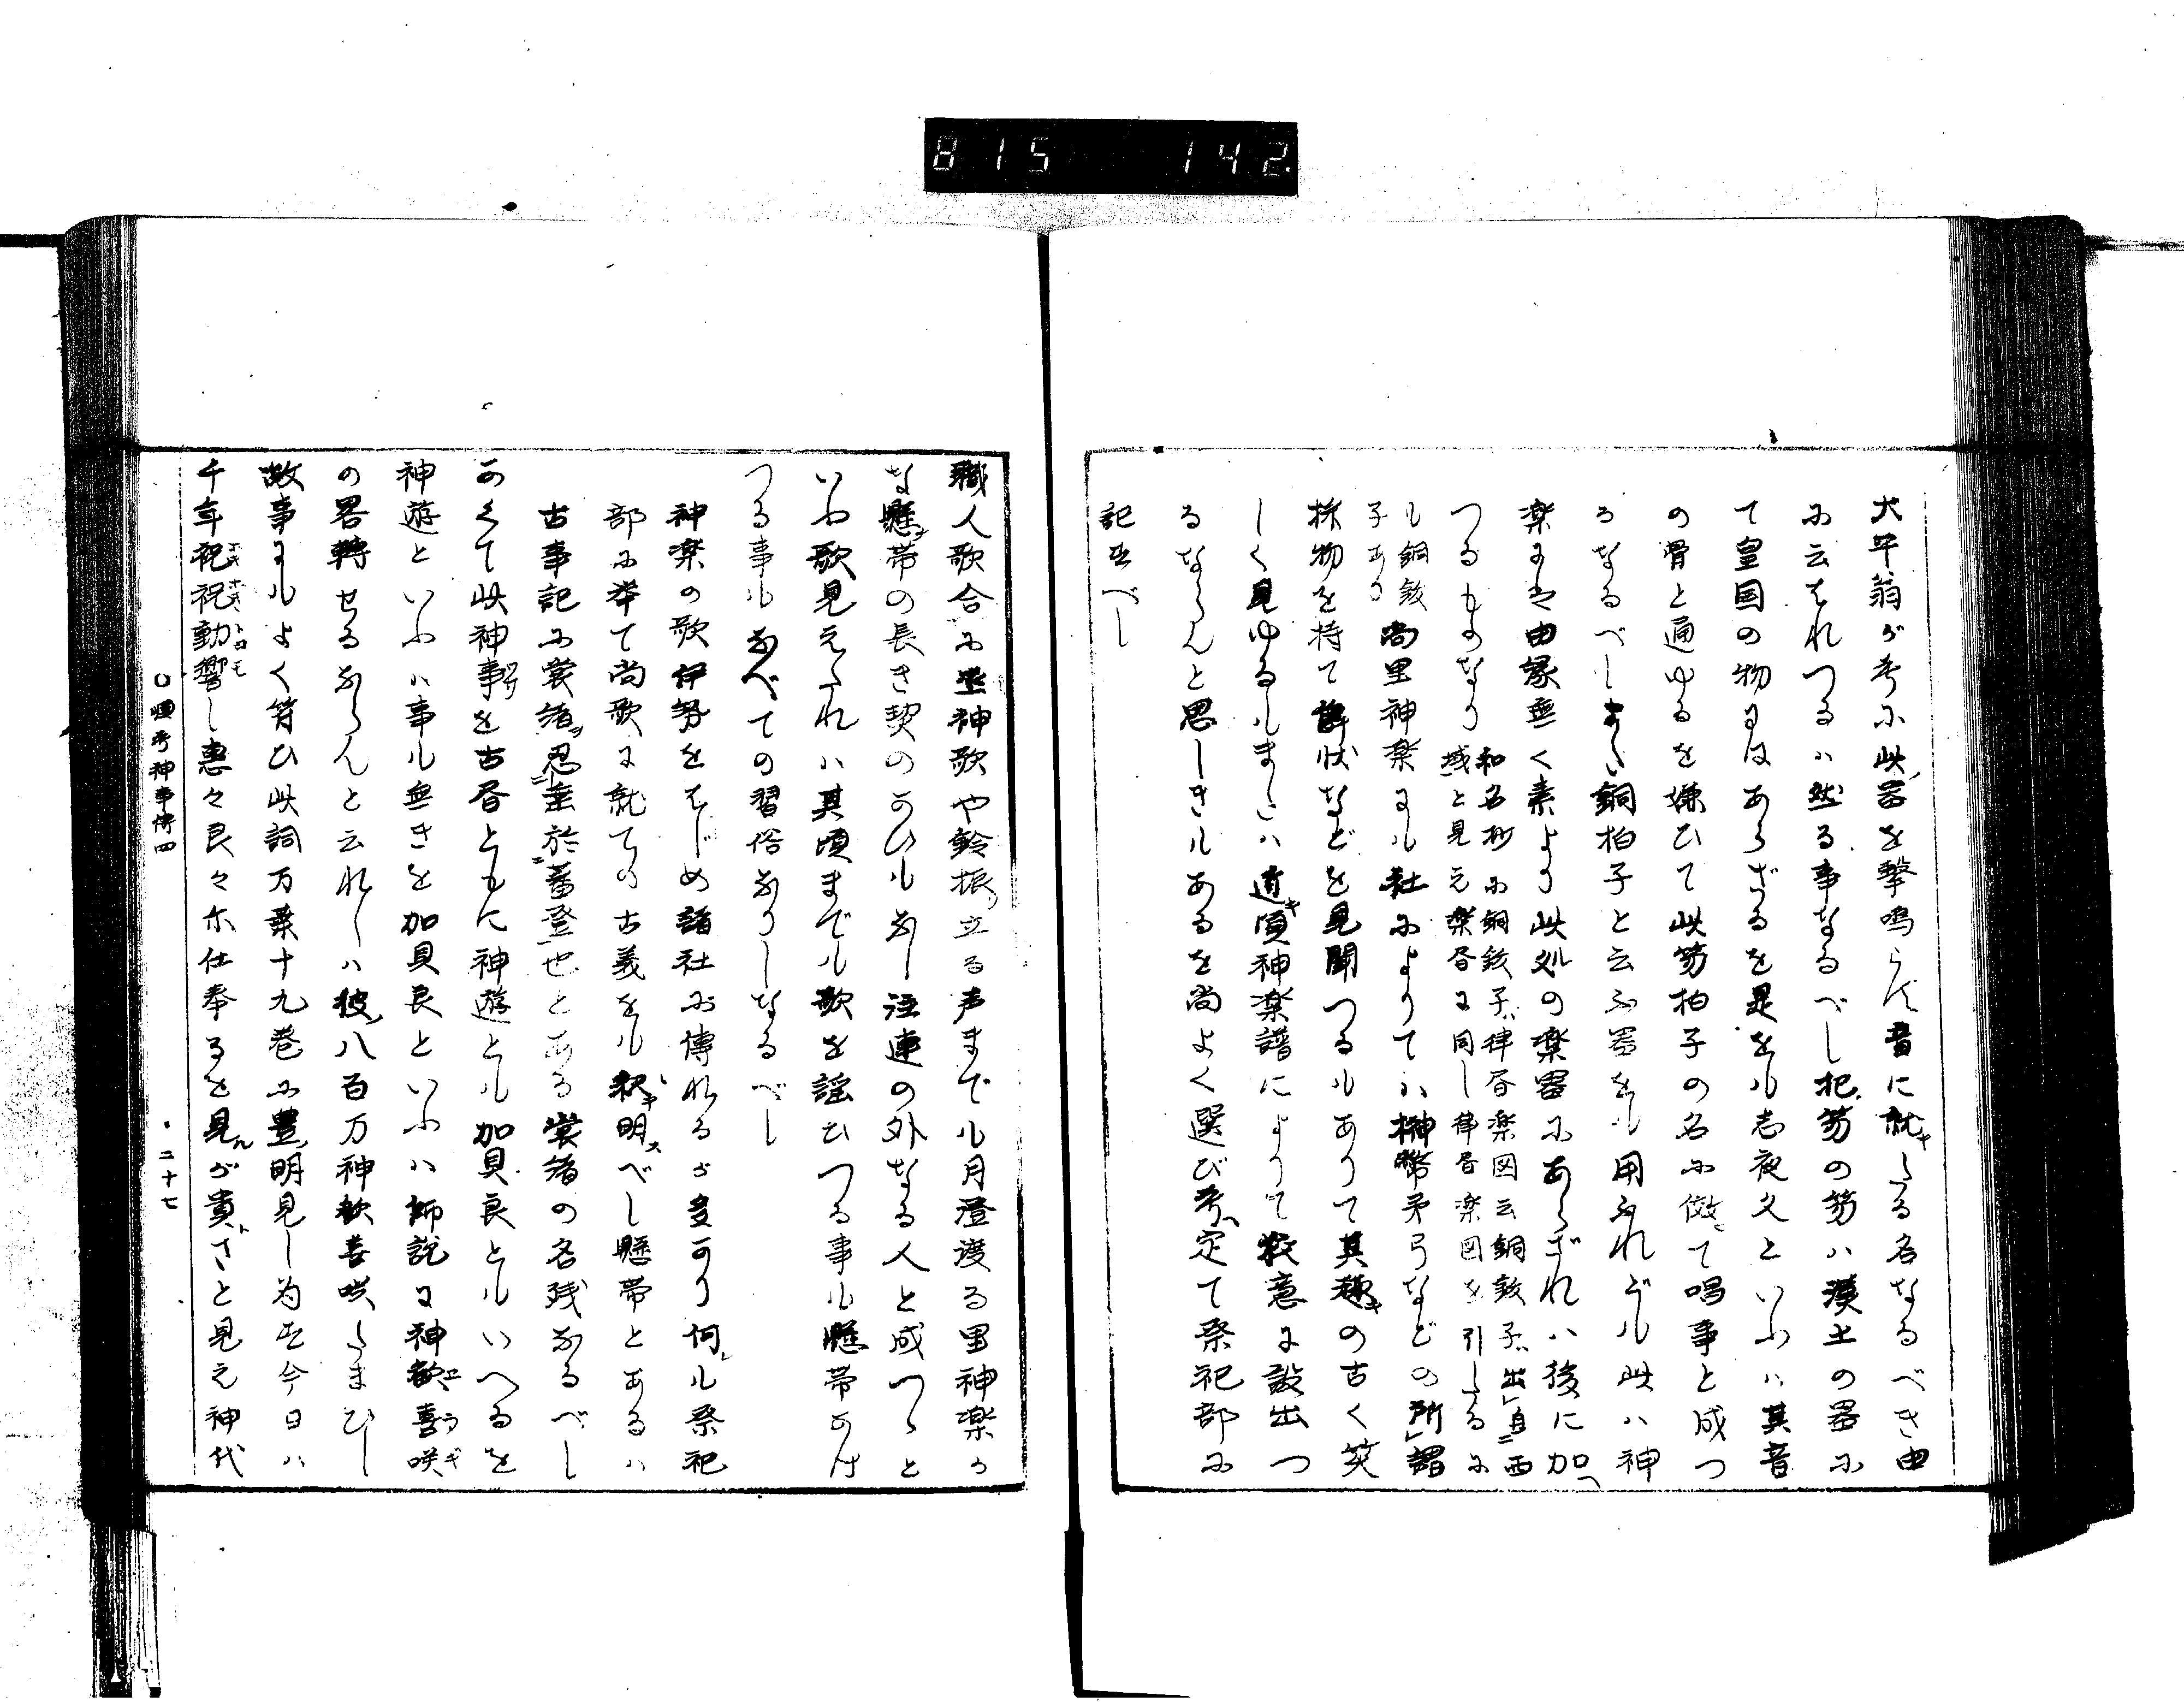 815 142
大平翁が考に此器を撃鳴らす音に就たる名なるべき由
に云はれつるハ然る事なるべし抑笏の笏ハ漢土の器に
て皇国の物にはあらざるを是をも志夜久といふハ其音
の骨と通ゆるを嫌ひて此笏拍子の名に倣て唱事と成つ
るなるべしまた銅拍子と云ふ器をも用ふれども此ハ神
楽には由縁無く素より此処の楽器にあらざれハ後に加へ
つるものなり
和名抄に銅鈸子律呂楽図云銅鈸子出自西
域と見え楽呂に同し律呂楽図を引たるに
も銅鈸
子あり
尚里神楽にも社によりてハ榊幣矛弓などの所謂
採物を持て舞状などを見聞つるもありて其趣の古く笑
しく見ゆるもましハ近頃神楽譜によりて教意に設出つ
るならんと思しきもあるを尚よく選び考定て祭祀部に
記すべし
職人歌合に巫神歌や鈴振立る声までも月澄渡る里神楽か
な懸帯の長き契のかひもなし注連の外なる人と成つゝと
いふ歌見えたれハ其頃までも歌を謡ひつる事も懸帯かけ
つる事もなべての習俗なりしなるべし
神楽の歌伊勢をはじめ諸社に傳れるが多かり何も祭祀
部に挙て尚歌に就ての古義をも釈明べし懸帯とあるハ
古事記に裳緒忍垂於番登也とある裳緒の名残なるべし
かくて此神事を古昏ともに神遊とも加貝良ともいへるを
神遊といふハ事も無きを加貝良といふハ師説に神歓喜咲
の畧轉せるならんと云れしハ彼八百万神歓喜咲たまひし
故事にもよく符ひ此詞万葉十九巻に豊明見し為す今日ハ
千年祝祝動響し恵々良々尓仕奉るを見が貴さと見え神代
〇煙考神事傳四　二十七